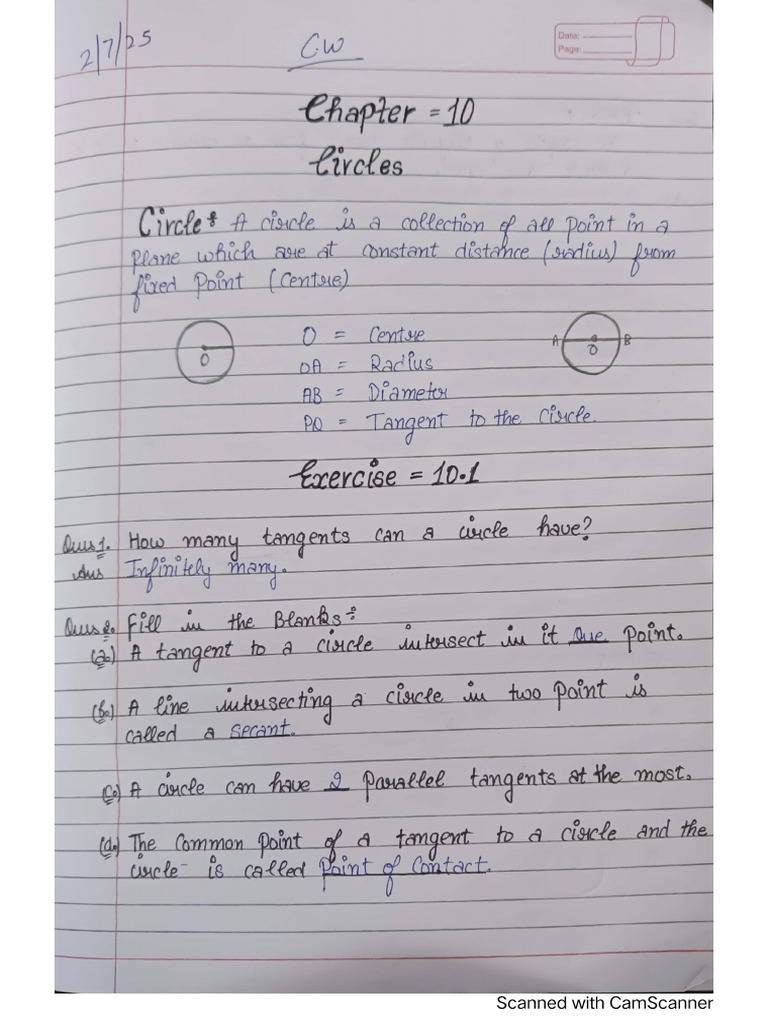 2/7/25
C.W
Date:
Page:
Chapter = 10
Circles
Circle: A circle is a collection of all point in a
plane which are at constant distance (radius) from
fixed point (Centre)
O
O = Centre
OA = Radius
AB = Diameter
PQ = Tangent to the Circle.
A O B
Exercise = 10.1
Ques 1. How many tangents can a circle have?
Ans Infinitely many.
Ques 2. Fill in the Blanks:
(a.) A tangent to a circle intersect in it one point.
(b.) A line intersecting a circle in two point is
called a secant.
(c.) A circle can have 2 parallel tangents at the most.
(d.) The common point of a tangent to a circle and the
circle is called point of contact.
Scanned with CamScanner